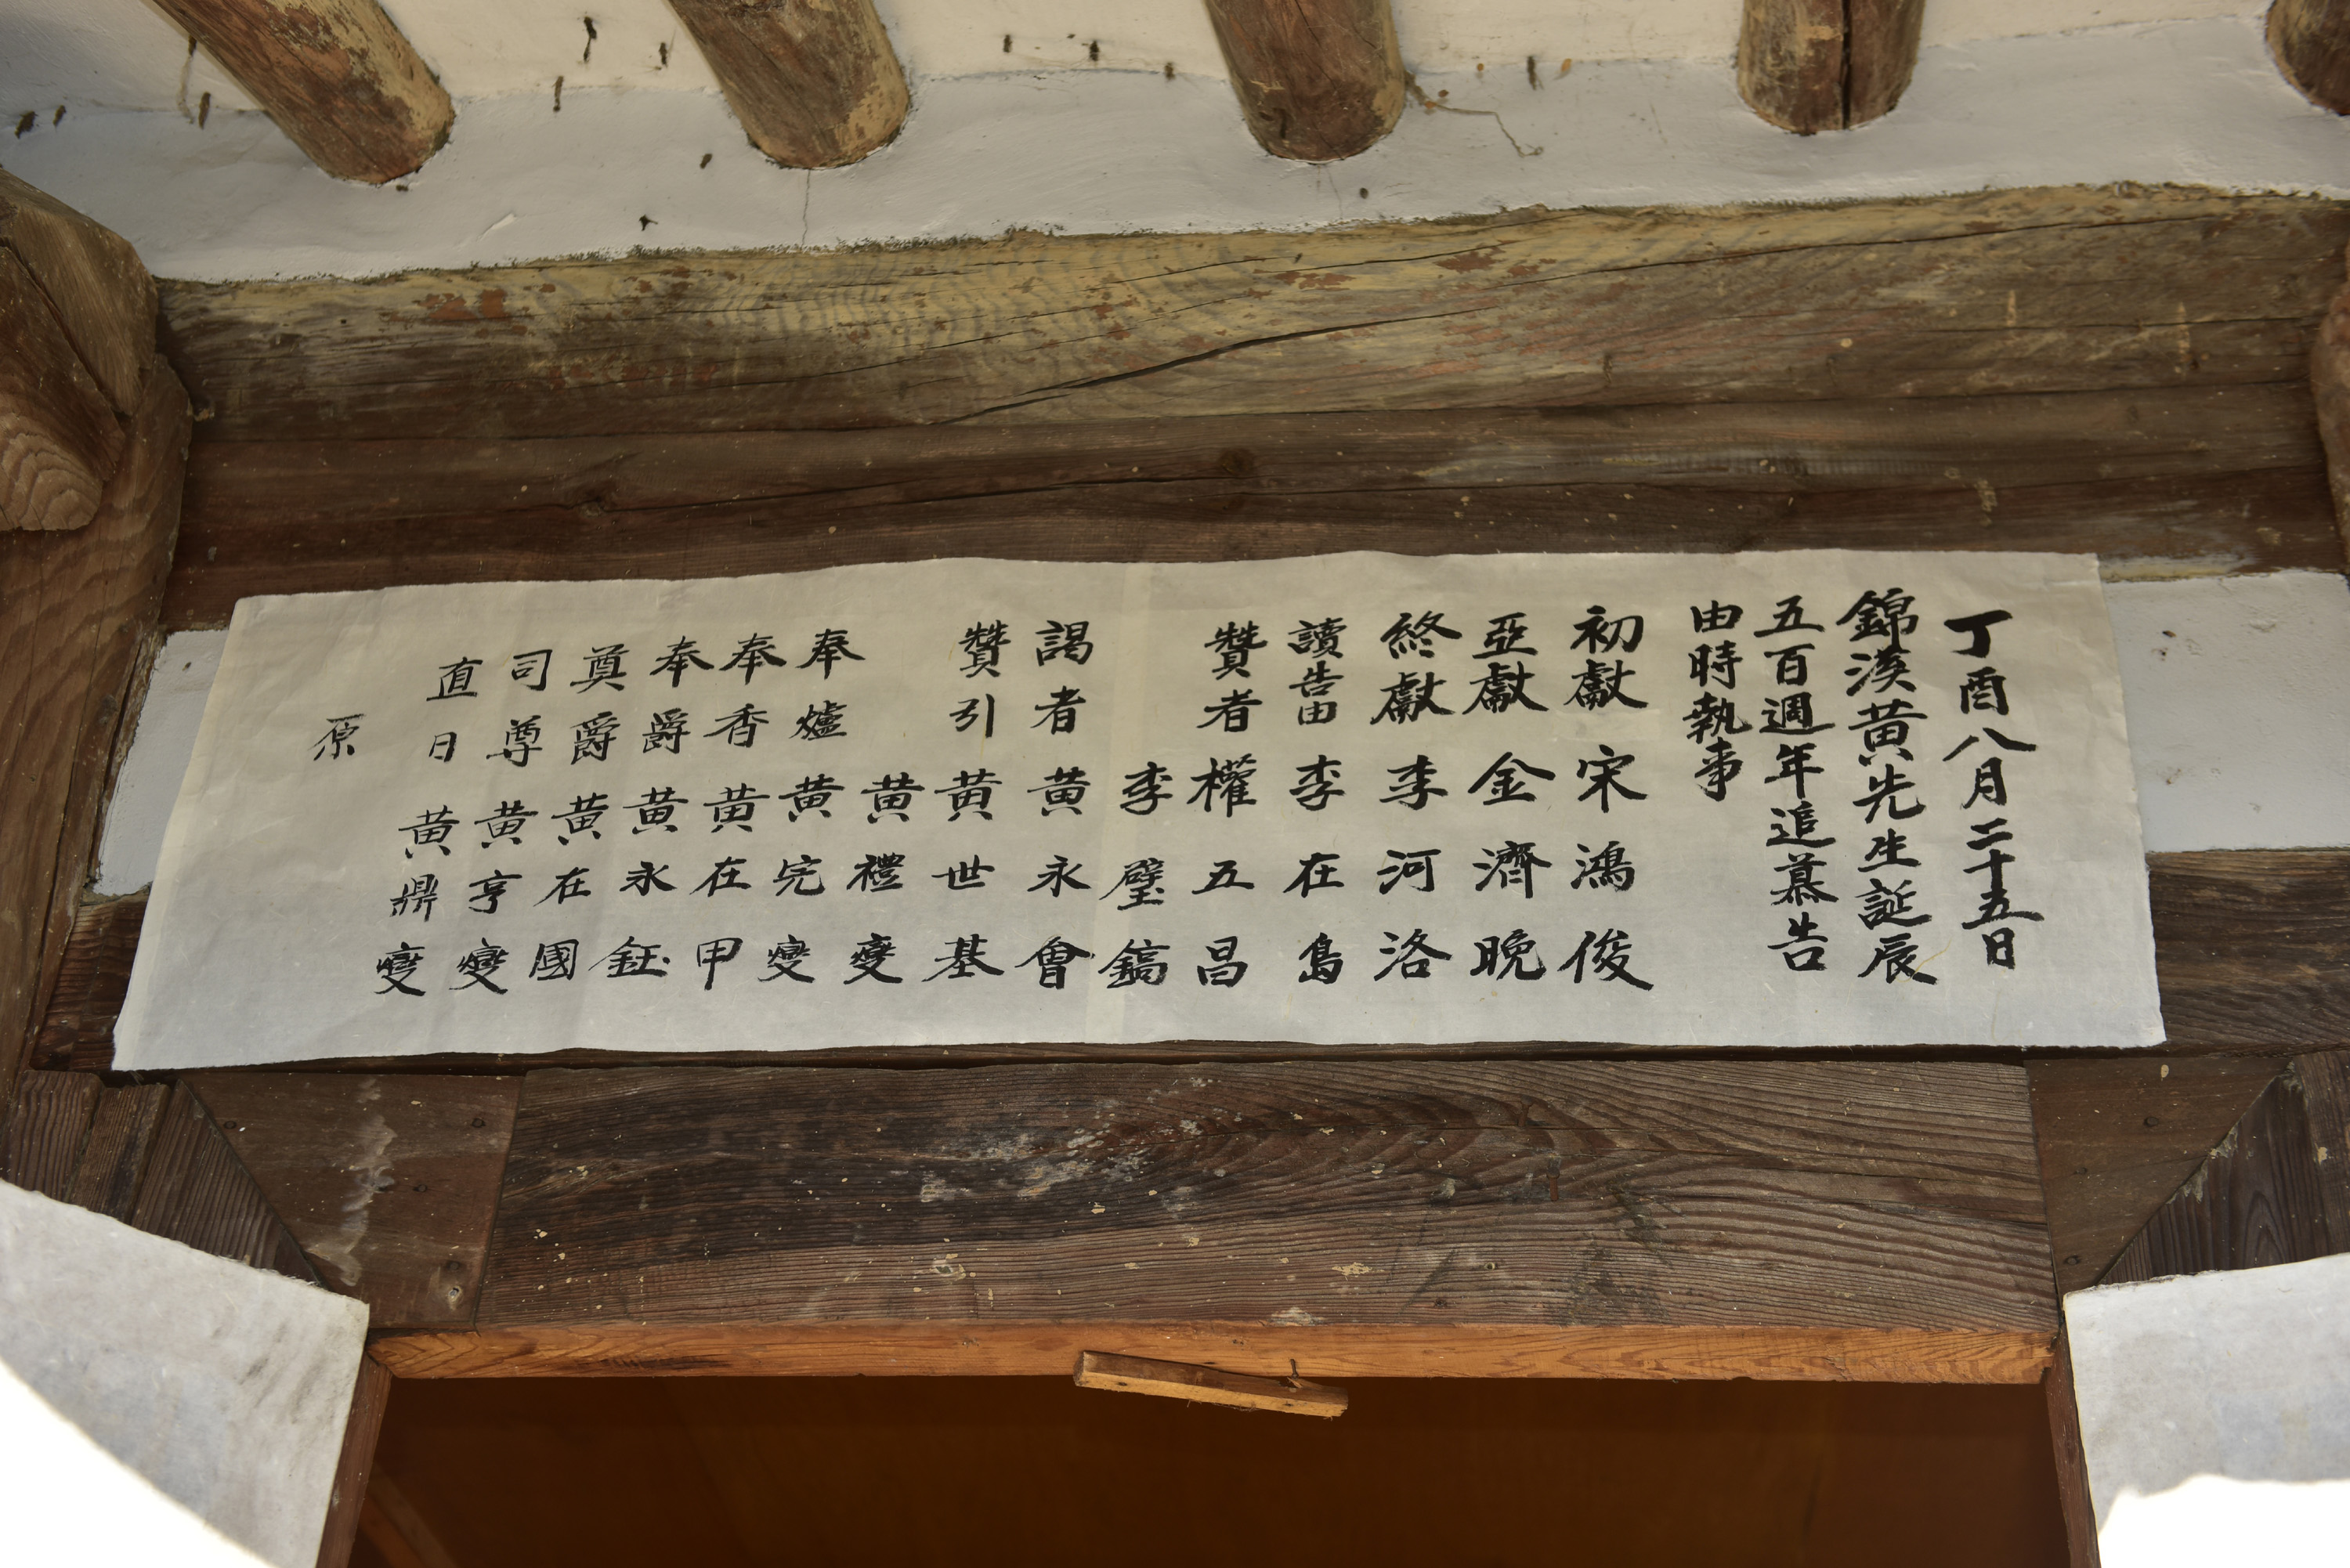 丁酉八月二十五日
錦溪黃先生誕辰
五百週年追慕告
由時執事
初獻 宋鴻俊
亞獻 金濟晩
終獻 李河洛
讀告由 李在島
贊者 權五昌
李璧鎬
謁者 黃永會
贊引 黃世基
黃禮燮
奉爐 黃完燮
奉香 黃在甲
奉爵 黃永鈺
奠爵 黃在國
司尊 黃亨燮
直日 黃鼎燮
原